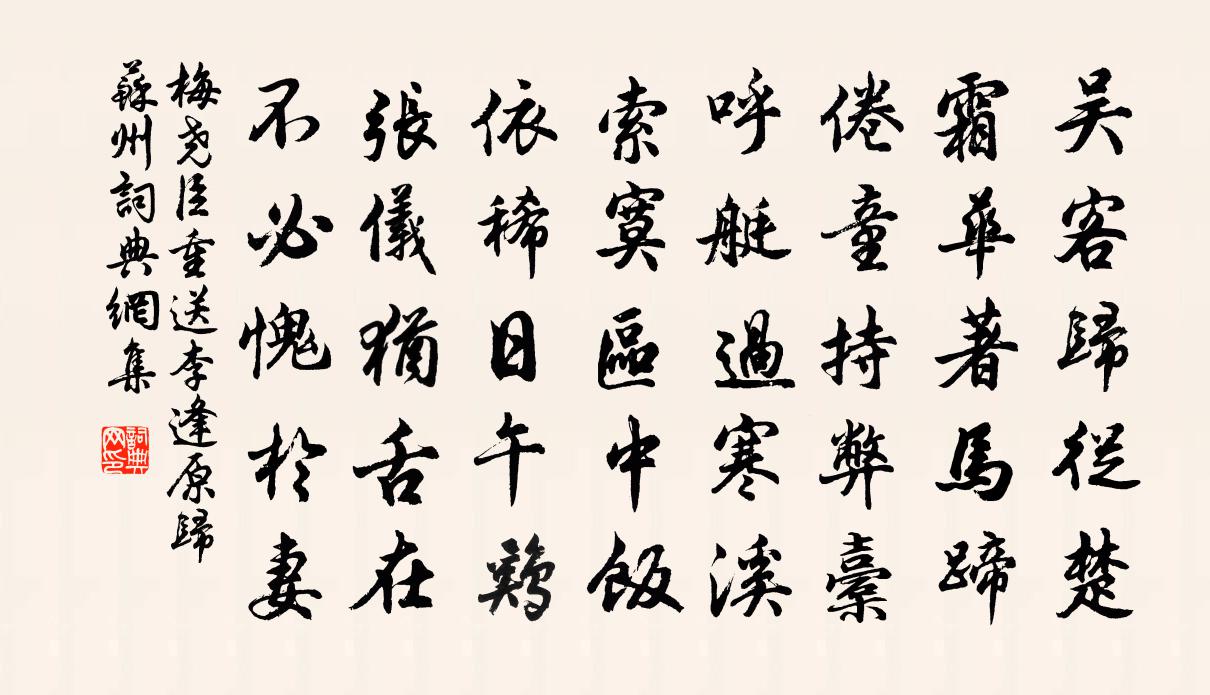 吴客歸從楚
霜華著馬蹄
倦童持弊橐
呼艇過寒溪
索寞區中飯
依稀日午鷄
張儀猶舌在
不必愧於妻
梅尧臣重送李逢原歸
蘇州詞典網集
詞典网印